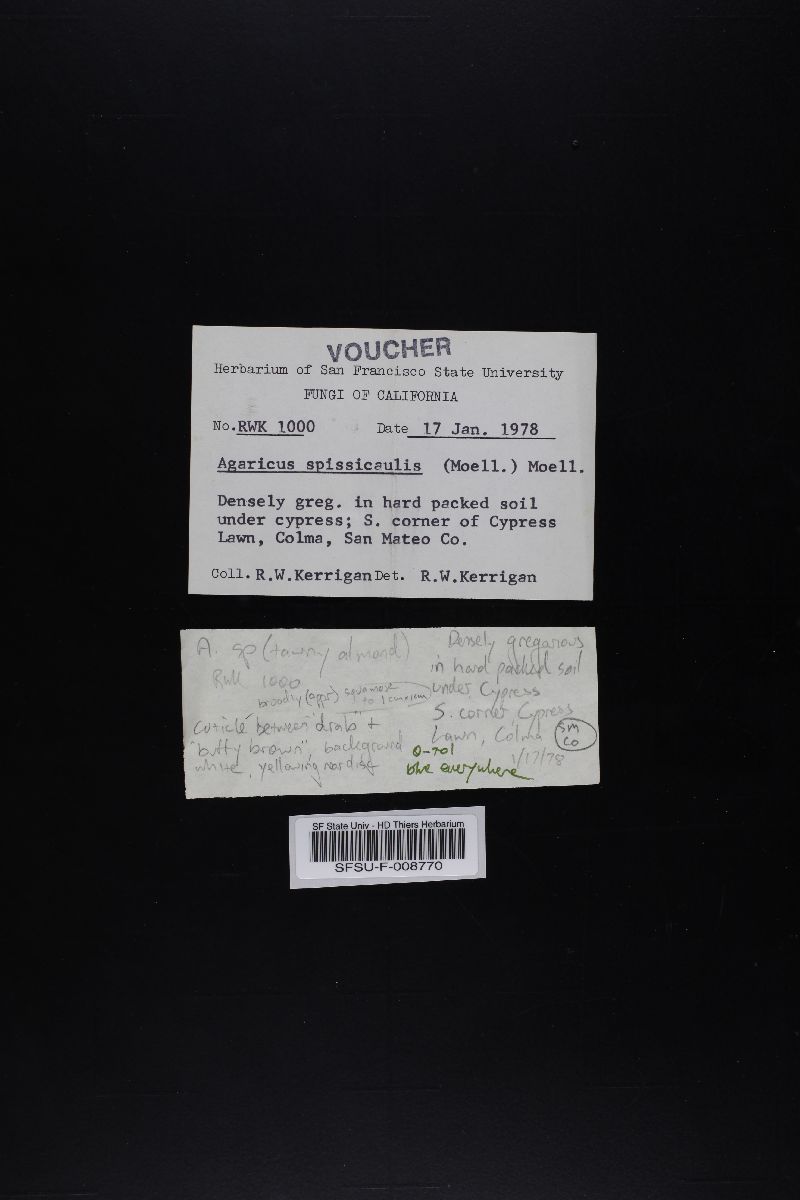 VOUCHER
Herbarium of San Francisco State University
FUNGI OF CALIFORNIA
No. RWK 1000 Date 17 Jan. 1978
Agaricus spissicaulis (Moell.) Moell.
Densely greg. in hard packed soil
under cypress; S. corner of Cypress
Lawn, Colma, San Mateo Co.
Coll. R.W.Kerrigan Det. R.W.Kerrigan
A. sp (tawny almond)
RWK 1000
broadly (appr) squamose
to 1 cm
Cuticle between "drab" +
"buffy brown", background
white, yellowing nor disk
Densely gregarious
in hard packed soil
under Cypress
S. corner, Cypress
Lawn, Colma SM Co
1/17/78
O-tol
blue everywhere
SF State Univ - HD Thiers Herbarium
SFSU-F-008770